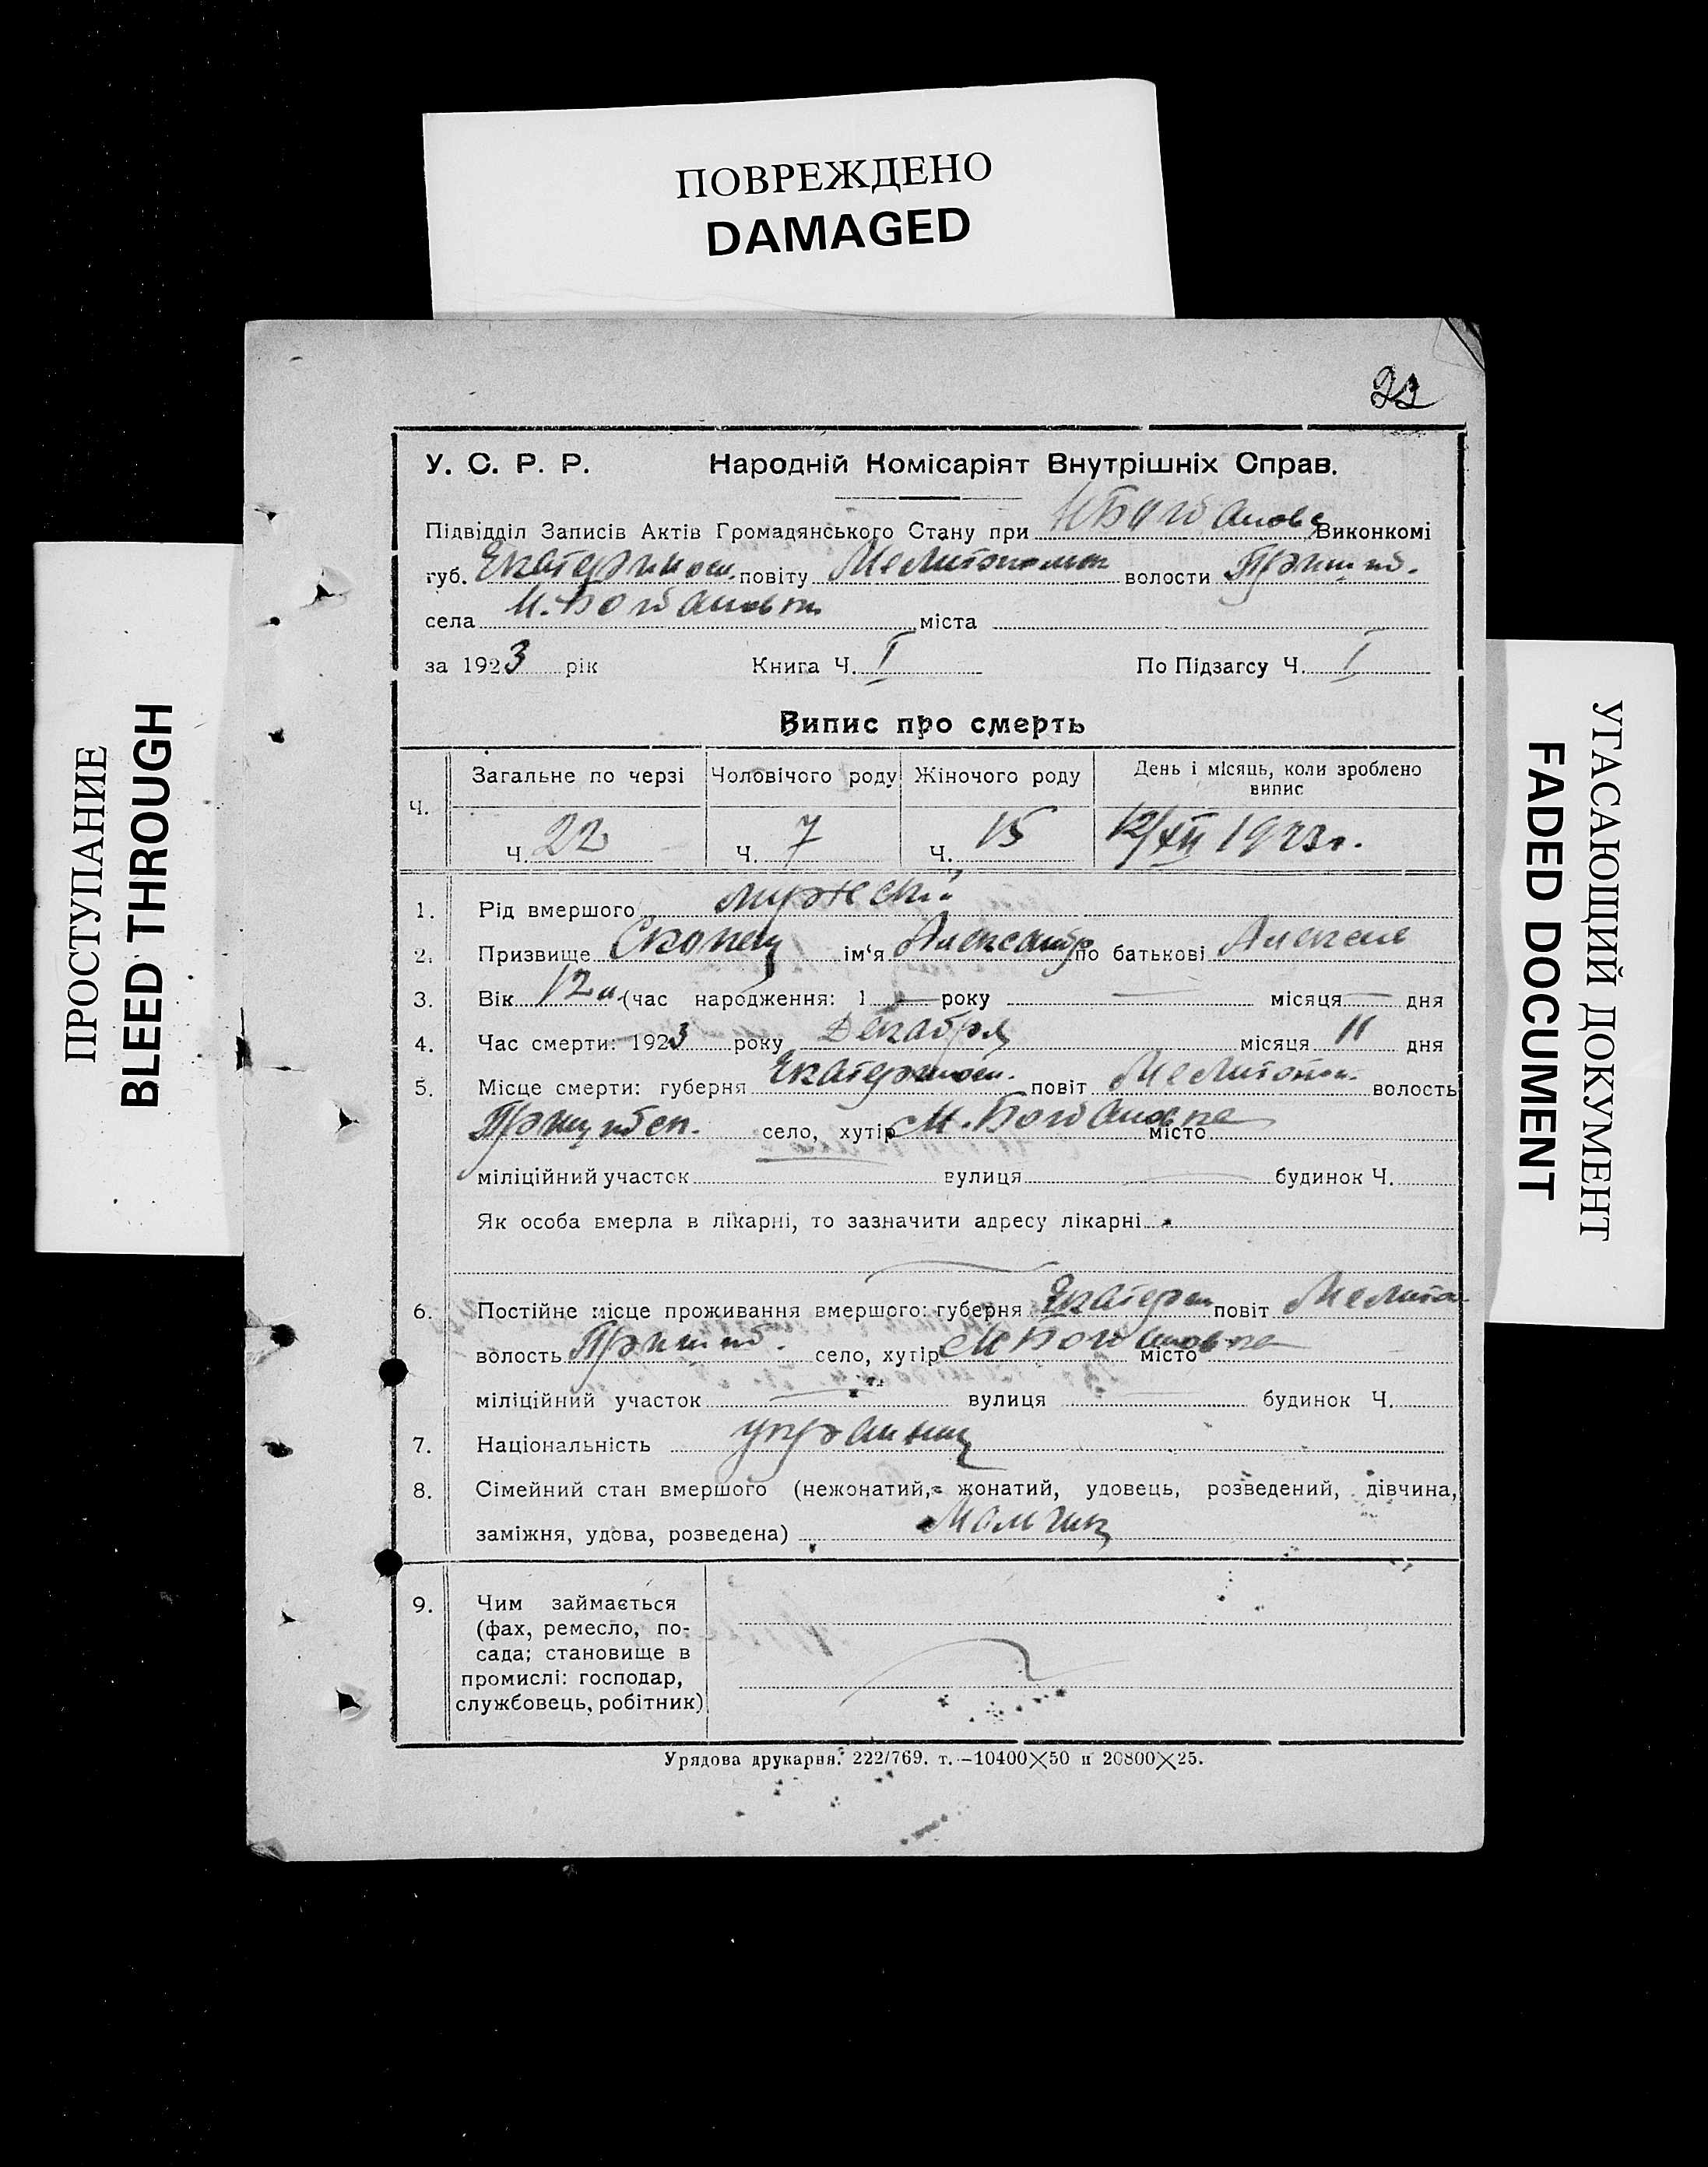 ПОВРЕЖДЕНО
DAMAGED
ПРОСТУПАНИЕ
BLEED THROUGH
УГАСАЮЩИЙ ДОКУМЕНТ
FADED DOCUMENT
У. С. Р. Р. Народній Комісаріят Внутрішніх Справ.
Підвідділ Записів Актів Громадянського Стану при Виконкомі
губ. Екатеринос. повіту Мелитопольск волости Пришиб.
села М. Богдановки міста
за 1923 рік Книга Ч. I По Підзагсу Ч. I
Випис про смерть
Ч. Загальне по черзі Чоловічого роду Жіночого роду День і місяць, коли зроблено випис
Ч. 22 Ч. 7 Ч. 15 12/XII 1923 г.
1. Рід вмершого мужеский
2. Призвище Скопец ім'я Александр по батькові Алексее
3. Вік 12 (час народження: 1 — року — місяця — дня
4. Час смерти: 1923 року Декабря місяця 11 дня
5. Місце смерти: губерня Екатеринос. повіт Мелитопол. волость
Пришибск. село, хутір М. Богдановка місто
міліційний участок вулиця будинок Ч.
Як особа вмерла в лікарні, то зазначити адресу лікарні
6. Постійне місце проживання вмершого: губерня Екатерин повіт Мелито
волость Пришиб. село, хутір М Богдановка місто
міліційний участок вулиця будинок Ч.
7. Національність украинец
8. Сімейний стан вмершого (нежонатий, жонатий, удовець, розведений, дівчина,
заміжня, удова, розведена) Мальчик
9. Чим займається
(фах, ремесло, по-
сада; становище в
промислі: господар,
службовець, робітник)
Урядова друкарня. 222/769. т.—10400×50 и 20800×25.